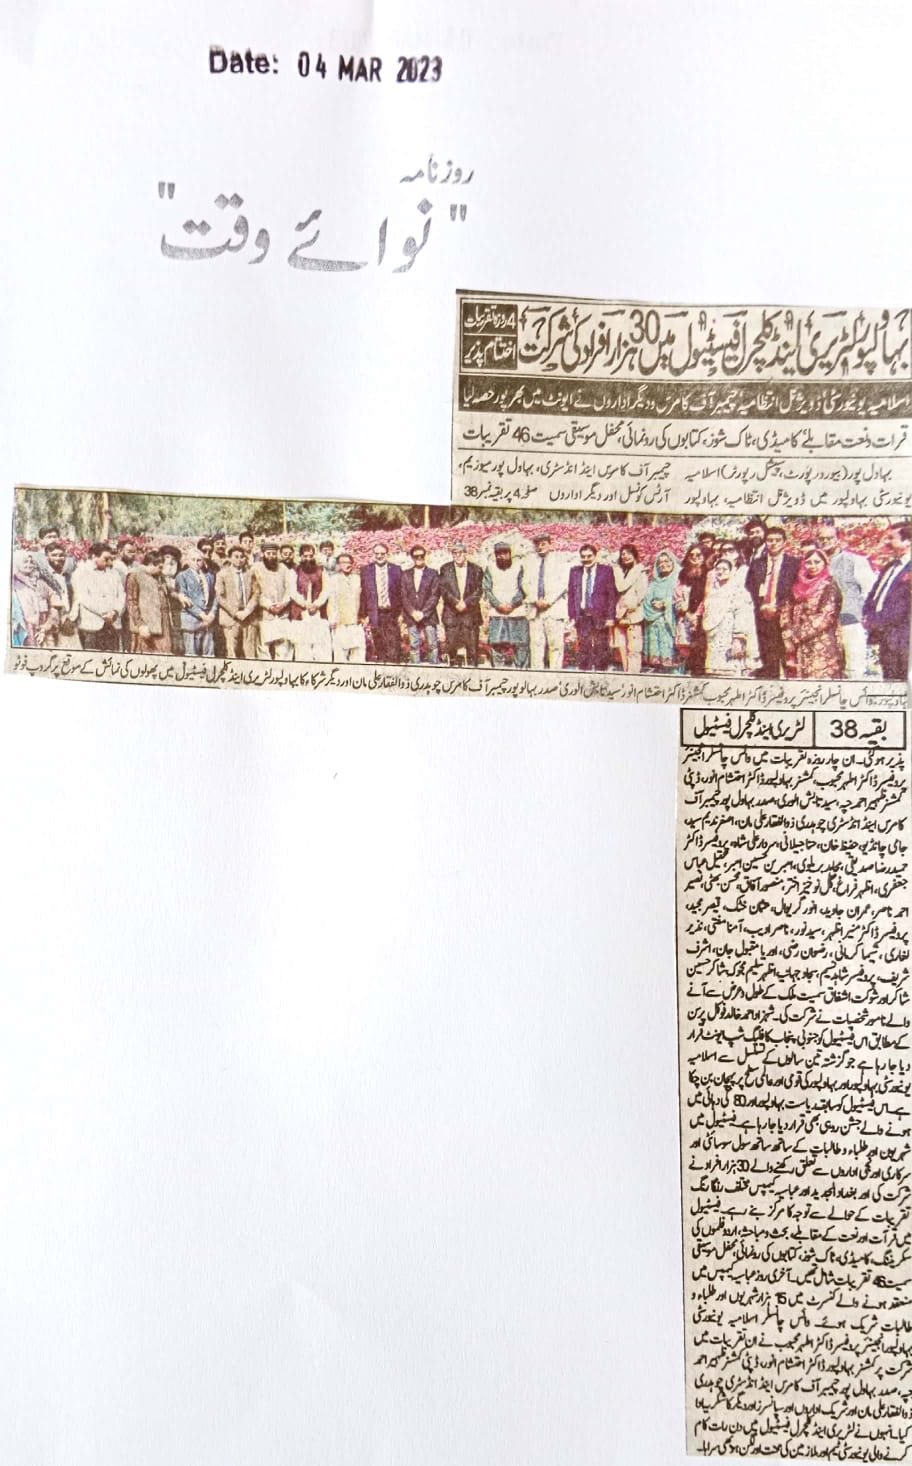 Date: 04 MAR 2023
روزنامہ
"نوائے وقت"
بہاولپور لٹریری اینڈ کلچرل فیسٹیول میں 30 ہزار افراد کی شرکت
4 روزہ تقریبات
اختتام پذیر
اسلامیہ یونیورسٹی ڈویژنل انتظامیہ چیمبر آف کامرس و دیگر اداروں نے ایونٹ میں بھرپور حصہ لیا
قرات و نعت مقابلے، کامیڈی، ٹاک شوز، کتابوں کی رونمائی، محفل موسیقی سمیت 46 تقریبات
بہاول پور (بیورو رپورٹ، سپیشل رپورٹر) اسلامیہ
یونیورسٹی بہاولپور میں ڈویژنل انتظامیہ، بہاولپور
چیمبر آف کامرس اینڈ انڈسٹری، بہاول پور میوزیم،
آرٹس کونسل اور دیگر اداروں صفحہ 4 پر بقیہ نمبر 38
بہاولپور، وائس چانسلر انجینئر پروفیسر ڈاکٹر اطہر محبوب کمشنر ڈاکٹر احتشام انور سید تابش الوری صدر بہاولپور چیمبر آف کامرس چوہدری ذوالفقار علی مان اور دیگر شرکاء کا بہاولپور لٹریری اینڈ کلچرل فیسٹیول میں پھولوں کی نمائش کے موقع پر گروپ فوٹو
بقیہ 38 لٹریری اینڈ کلچرل فیسٹیول
پذیر ہو گئی۔ ان چار روزہ تقریبات میں وائس چانسلر انجینئر
پروفیسر ڈاکٹر اطہر محبوب، کمشنر بہاولپور ڈاکٹر احتشام انور، ڈپٹی
کمشنر ظہیر احمد جپہ، سید تابش الوری، صدر بہاول پور چیمبر آف
کامرس اینڈ انڈسٹری چوہدری ذوالفقار علی مان، اصغر ندیم سید،
جامی چانڈیو، حفیظ خان، حنا جیلانی، سردار علی شاہ، پروفیسر ڈاکٹر
حمید رضا صدیقی، مجاہد بریلوی، امبرین حسین امبر، عقیل عباس
جعفری، اظہر فراغ، گل نوخیز اختر، منصور آفاق، محسن بھٹی، نصیر
احمد ناصر، عمران جاوید، انور گریوال، عثمان خٹک، قیصر مجید،
پروفیسر ڈاکٹر منیر اظہر، سید نور، ناصر ادیب، آمنا مفتی، نذیر
لغاری، شیما کرمانی، رضوان رضی، اوریا مقبول جان، اشرف
شریف، پروفیسر شاہد نسیم، سجاد جہانیہ، اظہر سلیم مجوکہ، شاکر حسین
شاکر اور شوکت اشفاق سمیت ملک کے طول و عرض سے آنے
والے نامور شخصیات نے شرکت کی۔ شہزاد احمد خالد فوکل پرسن
کے مطابق اس فیسٹیول کو جنوبی پنجاب کا فلیگ شپ ایونٹ قرار
دیا جا رہا ہے جو گزشتہ تین سالوں کے تسلسل سے اسلامیہ
یونیورسٹی بہاولپور اور بہاولپور کی قومی اور عالمی سطح پر پہچان بن چکا
ہے۔ اس فیسٹیول کو سابقہ ریاست بہاولپور اور 80 کی دہائی میں
ہونے والے جشن روہی بھی قرار دیا جا رہا ہے۔ فیسٹیول میں
شہریوں اور طلباء و طالبات کے ساتھ ساتھ سول سوسائٹی اور
سرکاری اور نجی اداروں سے تعلق رکھنے والے 30 ہزار افراد نے
شرکت کی اور بغداد الجدید اور عباسیہ کیمپس مختلف رنگا رنگ
تقریبات کے حوالے سے توجہ کا مرکز بنے رہے۔ فیسٹیول
میں قرآت اور نعت کے مقابلے، بحث و مباحثہ، اردو فلموں کی
سکریننگ، کامیڈی، ٹاک شوز، کتابوں کی رونمائی، محفل موسیقی
سمیت 46 تقریبات شامل تھیں۔ آخری روز عباسیہ کیمپس میں
منعقد ہونے والے کنسرٹ میں 15 ہزار شہریوں اور طلباء و
طالبات شریک ہوئے۔ وائس چانسلر اسلامیہ یونیورسٹی
بہاولپور انجینئر پروفیسر ڈاکٹر اطہر محبوب نے ان تقریبات میں
شرکت پر کمشنر بہاولپور ڈاکٹر احتشام انور، ڈپٹی کمشنر ظہیر احمد
جپہ، صدر بہاول پور چیمبر آف کامرس اینڈ انڈسٹری چوہدری
ذوالفقار علی مان اور شریک اداروں اور سپانسرز اور دیگر کا شکریہ ادا
کیا۔ انہوں نے لٹریری اینڈ کلچرل فیسٹیول میں دن رات کام
کرنے والی یونیورسٹی ٹیم اور ملازمین کی محنت اور لگن کو بھی سراہا۔